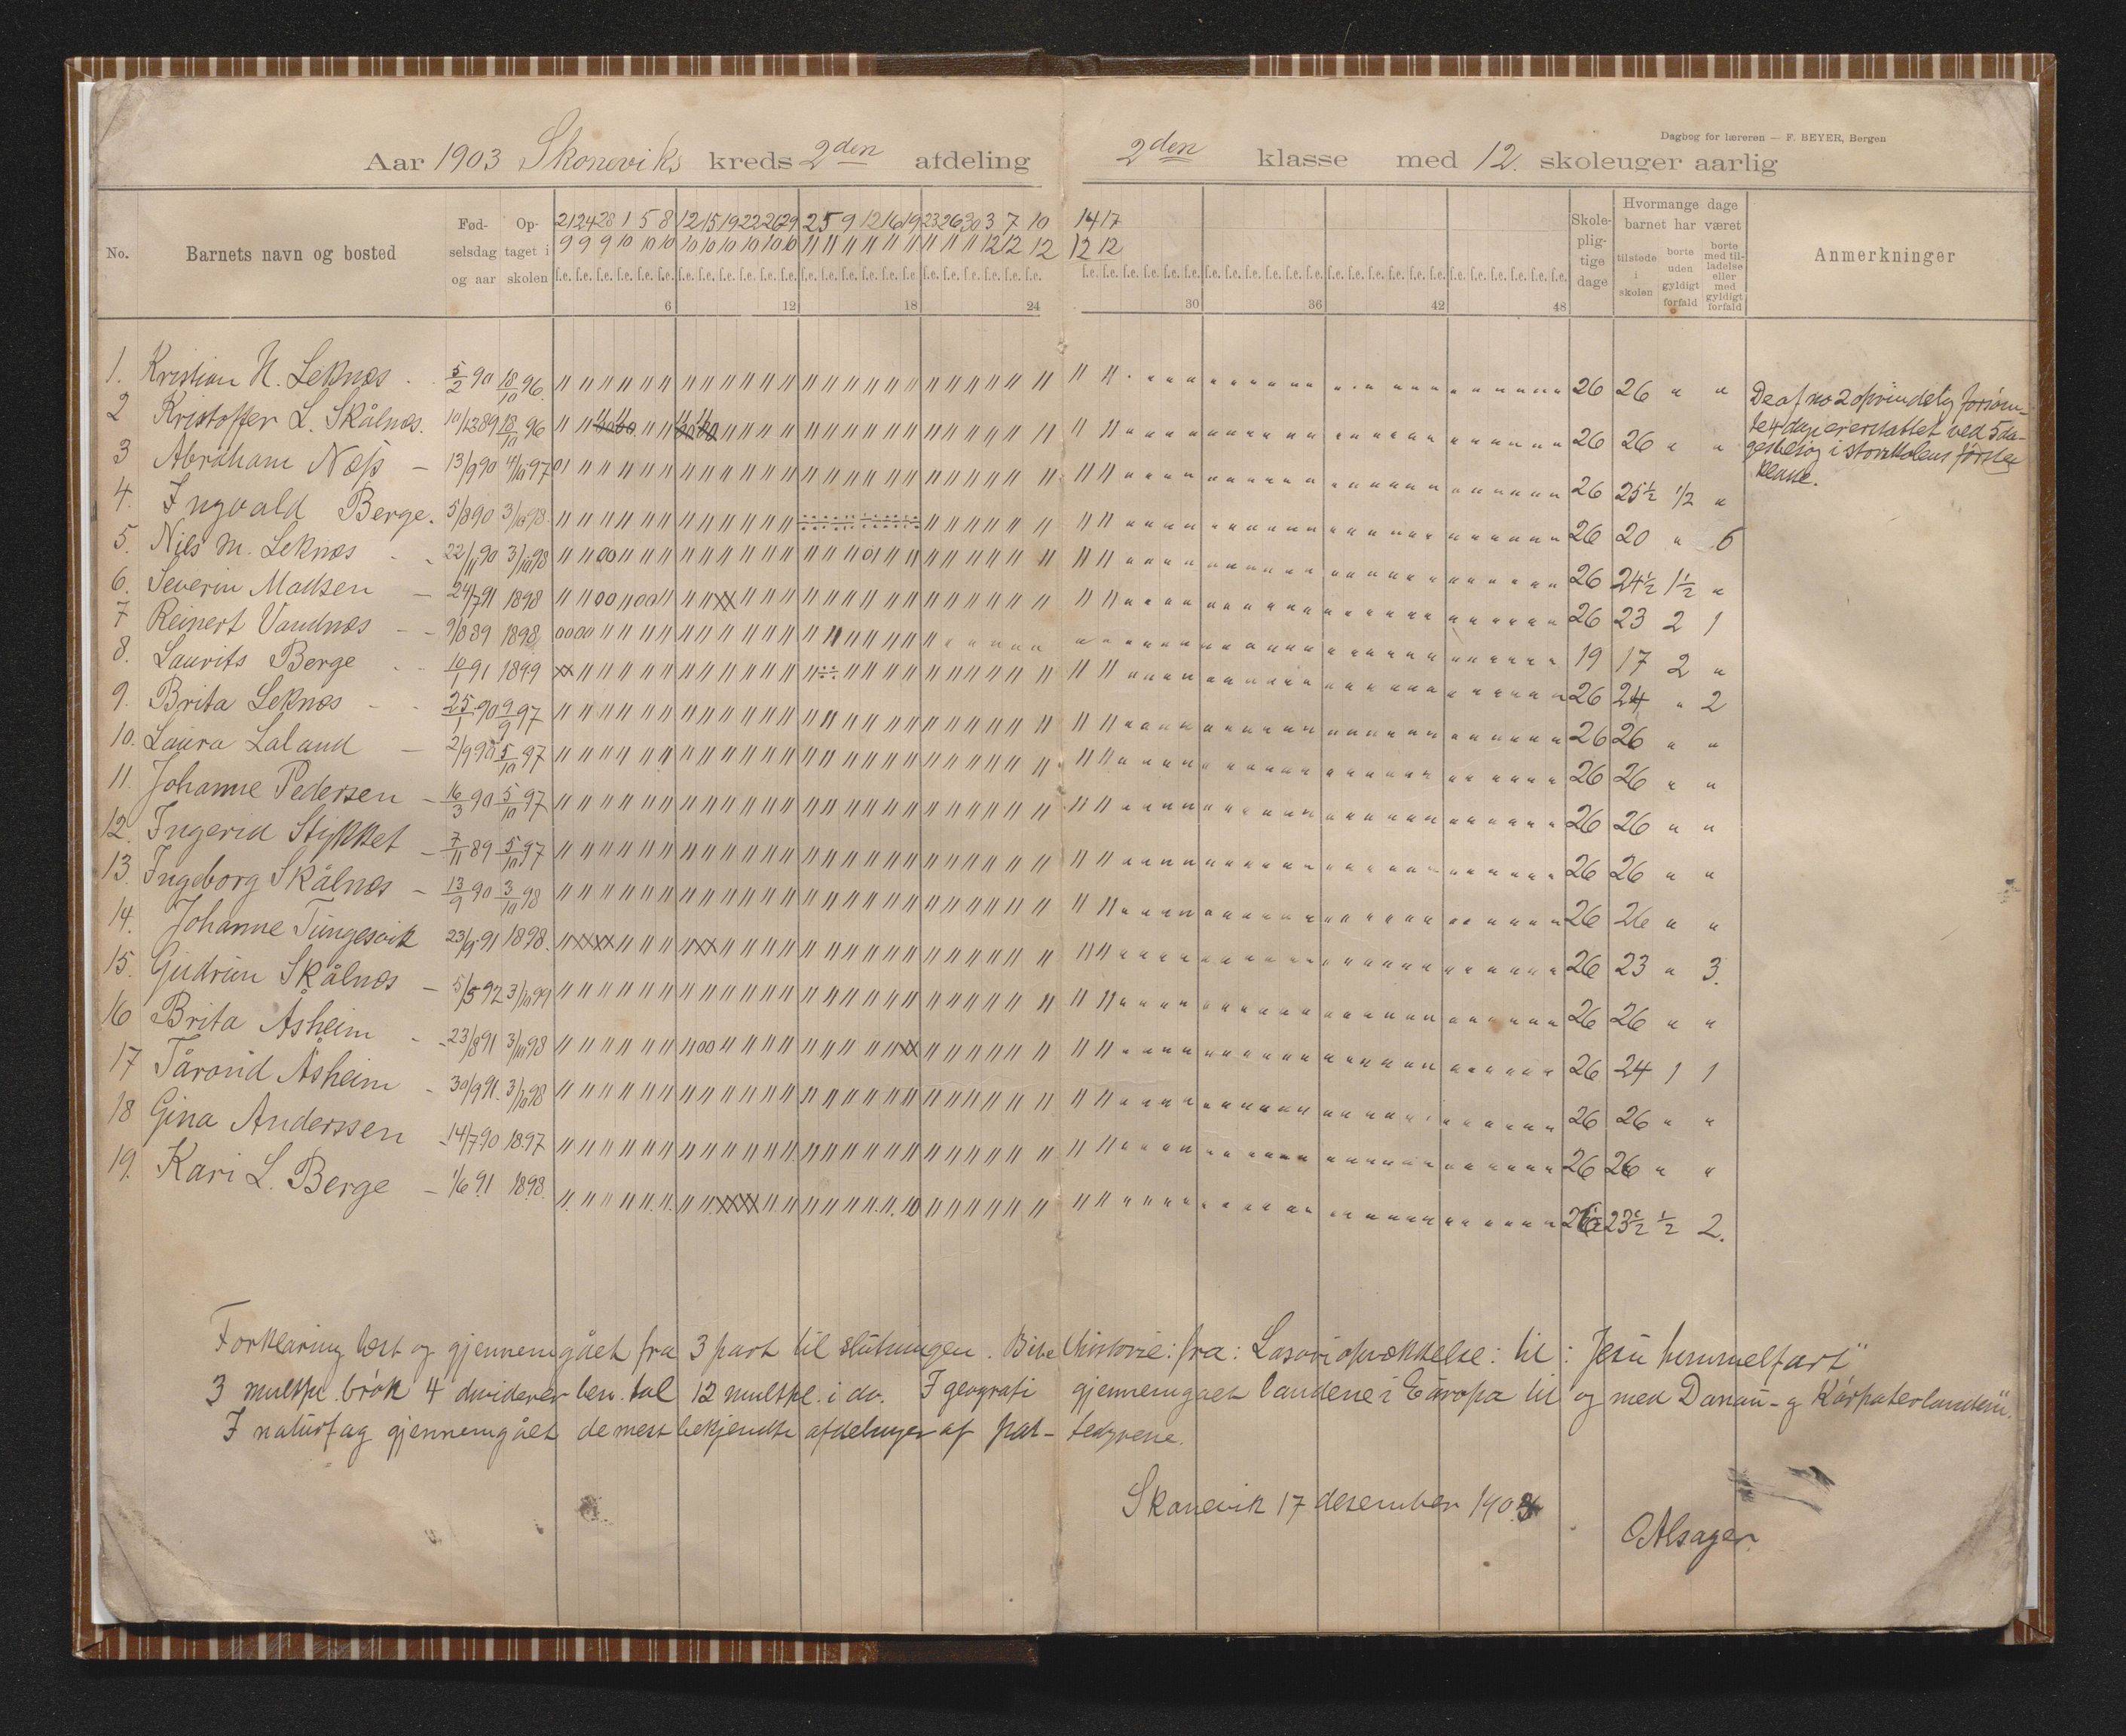 Dagbog for læreren — F. BEYER, Bergen
Aar 1903 Skoneviks kreds 2den afdeling 2den klasse med 12. skoleuger aarlig
No. Barnets navn og bosted Fødselsdag og aar Optaget i skolen Skolepligtige dage Hvormange dage barnet har været tilstede i skolen borte uden gyldigt forfald borte med tilladelse eller med gyldigt forfald Anmerkninger
21 24 28 1 5 8 12 15 19 22 26 29 2 5 9 12 16 19 23 26 30 3 7 10 14 17
9 9 9 10 10 10 10 10 10 10 10 10 11 11 11 11 11 11 11 11 11 12 12 12 12 12
f.e. f.e. f.e. f.e. f.e. f.e. f.e. f.e. f.e. f.e. f.e. f.e. f.e. f.e. f.e. f.e. f.e. f.e. f.e. f.e. f.e. f.e. f.e. f.e. f.e. f.e. f.e. f.e. f.e. f.e. f.e. f.e. f.e. f.e. f.e. f.e. f.e. f.e. f.e. f.e. f.e. f.e. f.e. f.e. f.e. f.e. f.e. f.e.
6 12 18 24 30 36 42 48
1. Kristian N. Leknes 5/2 90 18/10 96. 26 26 " "
2 Kristoffer L. Skålnes. 10/12 89 18/10 96 26 26 " "
3 Abraham Næss 13/9 90 4/10 97 26 25 1/2 1/2 "
4. Ingvald Berge. 5/8 90 3/10 98. 26 20 " 6
5. Nils M. Leknæs 22/11 90 3/10 98 26 24 1/2 1 1/2 "
6. Severin Madsen 24/7 91 1898 26 23 2 1
7 Reinert Vandnæs 9/8 89 1898 19 17 2 "
8. Laurits Berge 10/1 91 1899 26 24 " 2
9. Brita Leknæs 25/1 90 9/9 97 26 26 " "
10. Laura Laland 2/9 90 5/10 97 26 26 " "
11. Johanne Pedersen 16/3 90 5/10 97 26 26 " "
12. Ingerid Stykket 7/11 89 5/10 97 26 26 " "
13. Ingeborg Skålnes 13/9 90 3/10 98 26 26 " "
14. Johanne Tungesvik 23/9 91 1898. 26 23 " 3.
15. Gudrun Skålnes 5/5 92 3/10 99 26 26 " "
16 Brita Åsheim 23/8 91 3/10 98 26 24 1 1
17 Tårond Åsheim 30/9 91. 3/10 98 26 26 " "
18 Gina Anderssen 14/7 90 1897 26 26 " "
19. Kari L. Berge 1/6 91 1898. 26 23 1/2 1/2 2.
De af no 2 oprindelig forsøm-
te 4 dage er erstattet ved 5 da-
gesbesøg i storskolens første
klasse.
Forklaring læst og gjennemgået fra 3 part til slutningen. Bibelhistorie: fra: Lasari opvækkelse: til: Jesu himmelfart"
3 multpl. brøk 4 dividerer ben. tal 12 multpl. i do. I geografi gjennemgaaet landene i Europa til og med Danau- og Karpaterlandene".
I naturfag gjennemgået de mest bekjendte afdelinger af pat-tedyrene.
Skanevik 17 desember 1903
O Alsager.